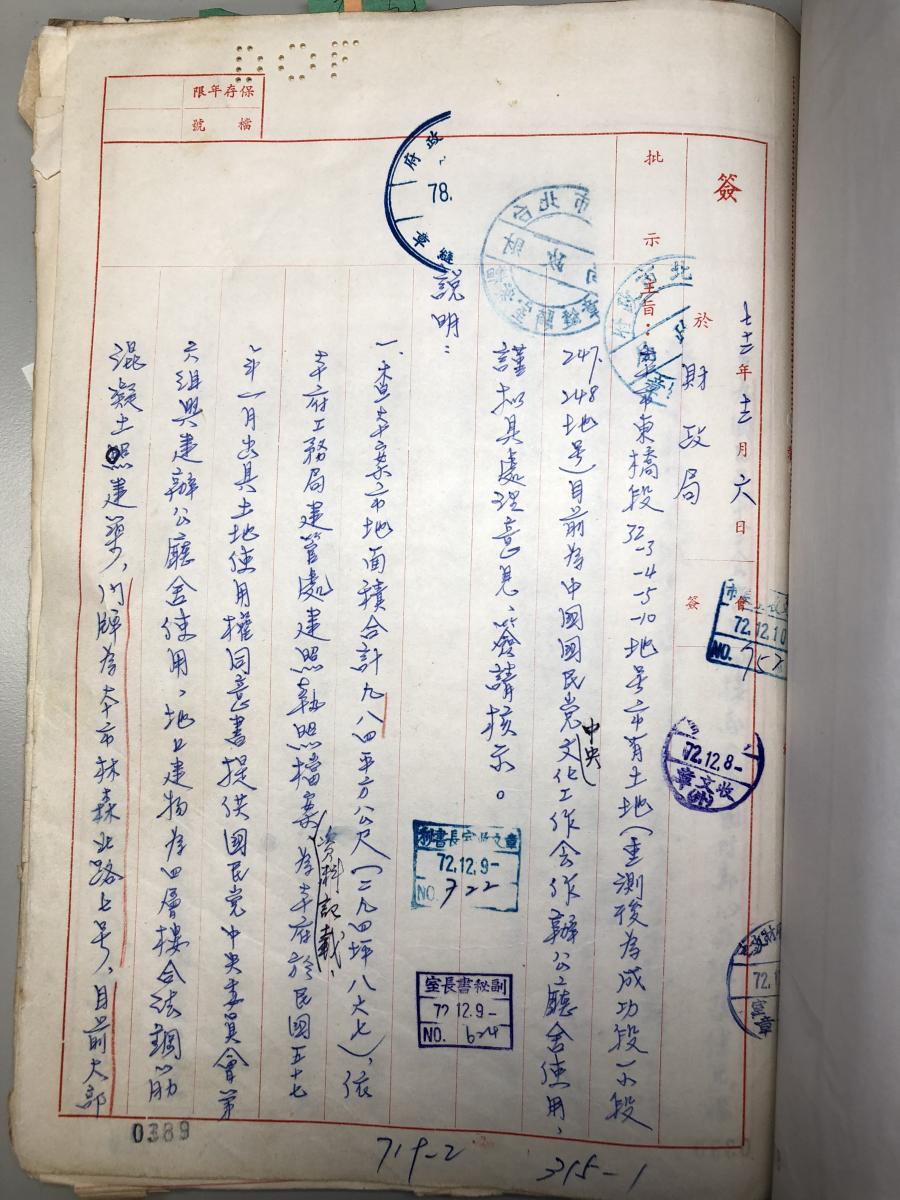 DOF
保存年限
檔號
簽
七十二年十二月六日
於財政局
會
簽
批示
主旨：
市東橋段32-3 -4 -5 -10地号市有土地（重測後為成功段一小段
247.248地号）目前為中國國民党中央文化工作会作辦公廳舍使用、
謹拟具處理意見、簽請核示。
説明：
一、查本案市地面積合計九八四平方公尺（二九四坪八六七），依
本府工務局建管處建照執照檔案資料記載、為本府於民國五十七
年一月出具土地使用權同意書提供國民党中央委員會第
六組興建辦公廳舍使用、地上建物為四層樓合法鋼筋
混凝土照建築，門牌為本市林森北路七号，目前大部
府 政
78.
縫 章
72.12.10
NO. 757
72.12.8-
收文章
秘書長室收文章
72.12.9-
NO. 722
副秘書長室
72.12.9-
NO. 624
72.1
室章
0389
719-2
315-1